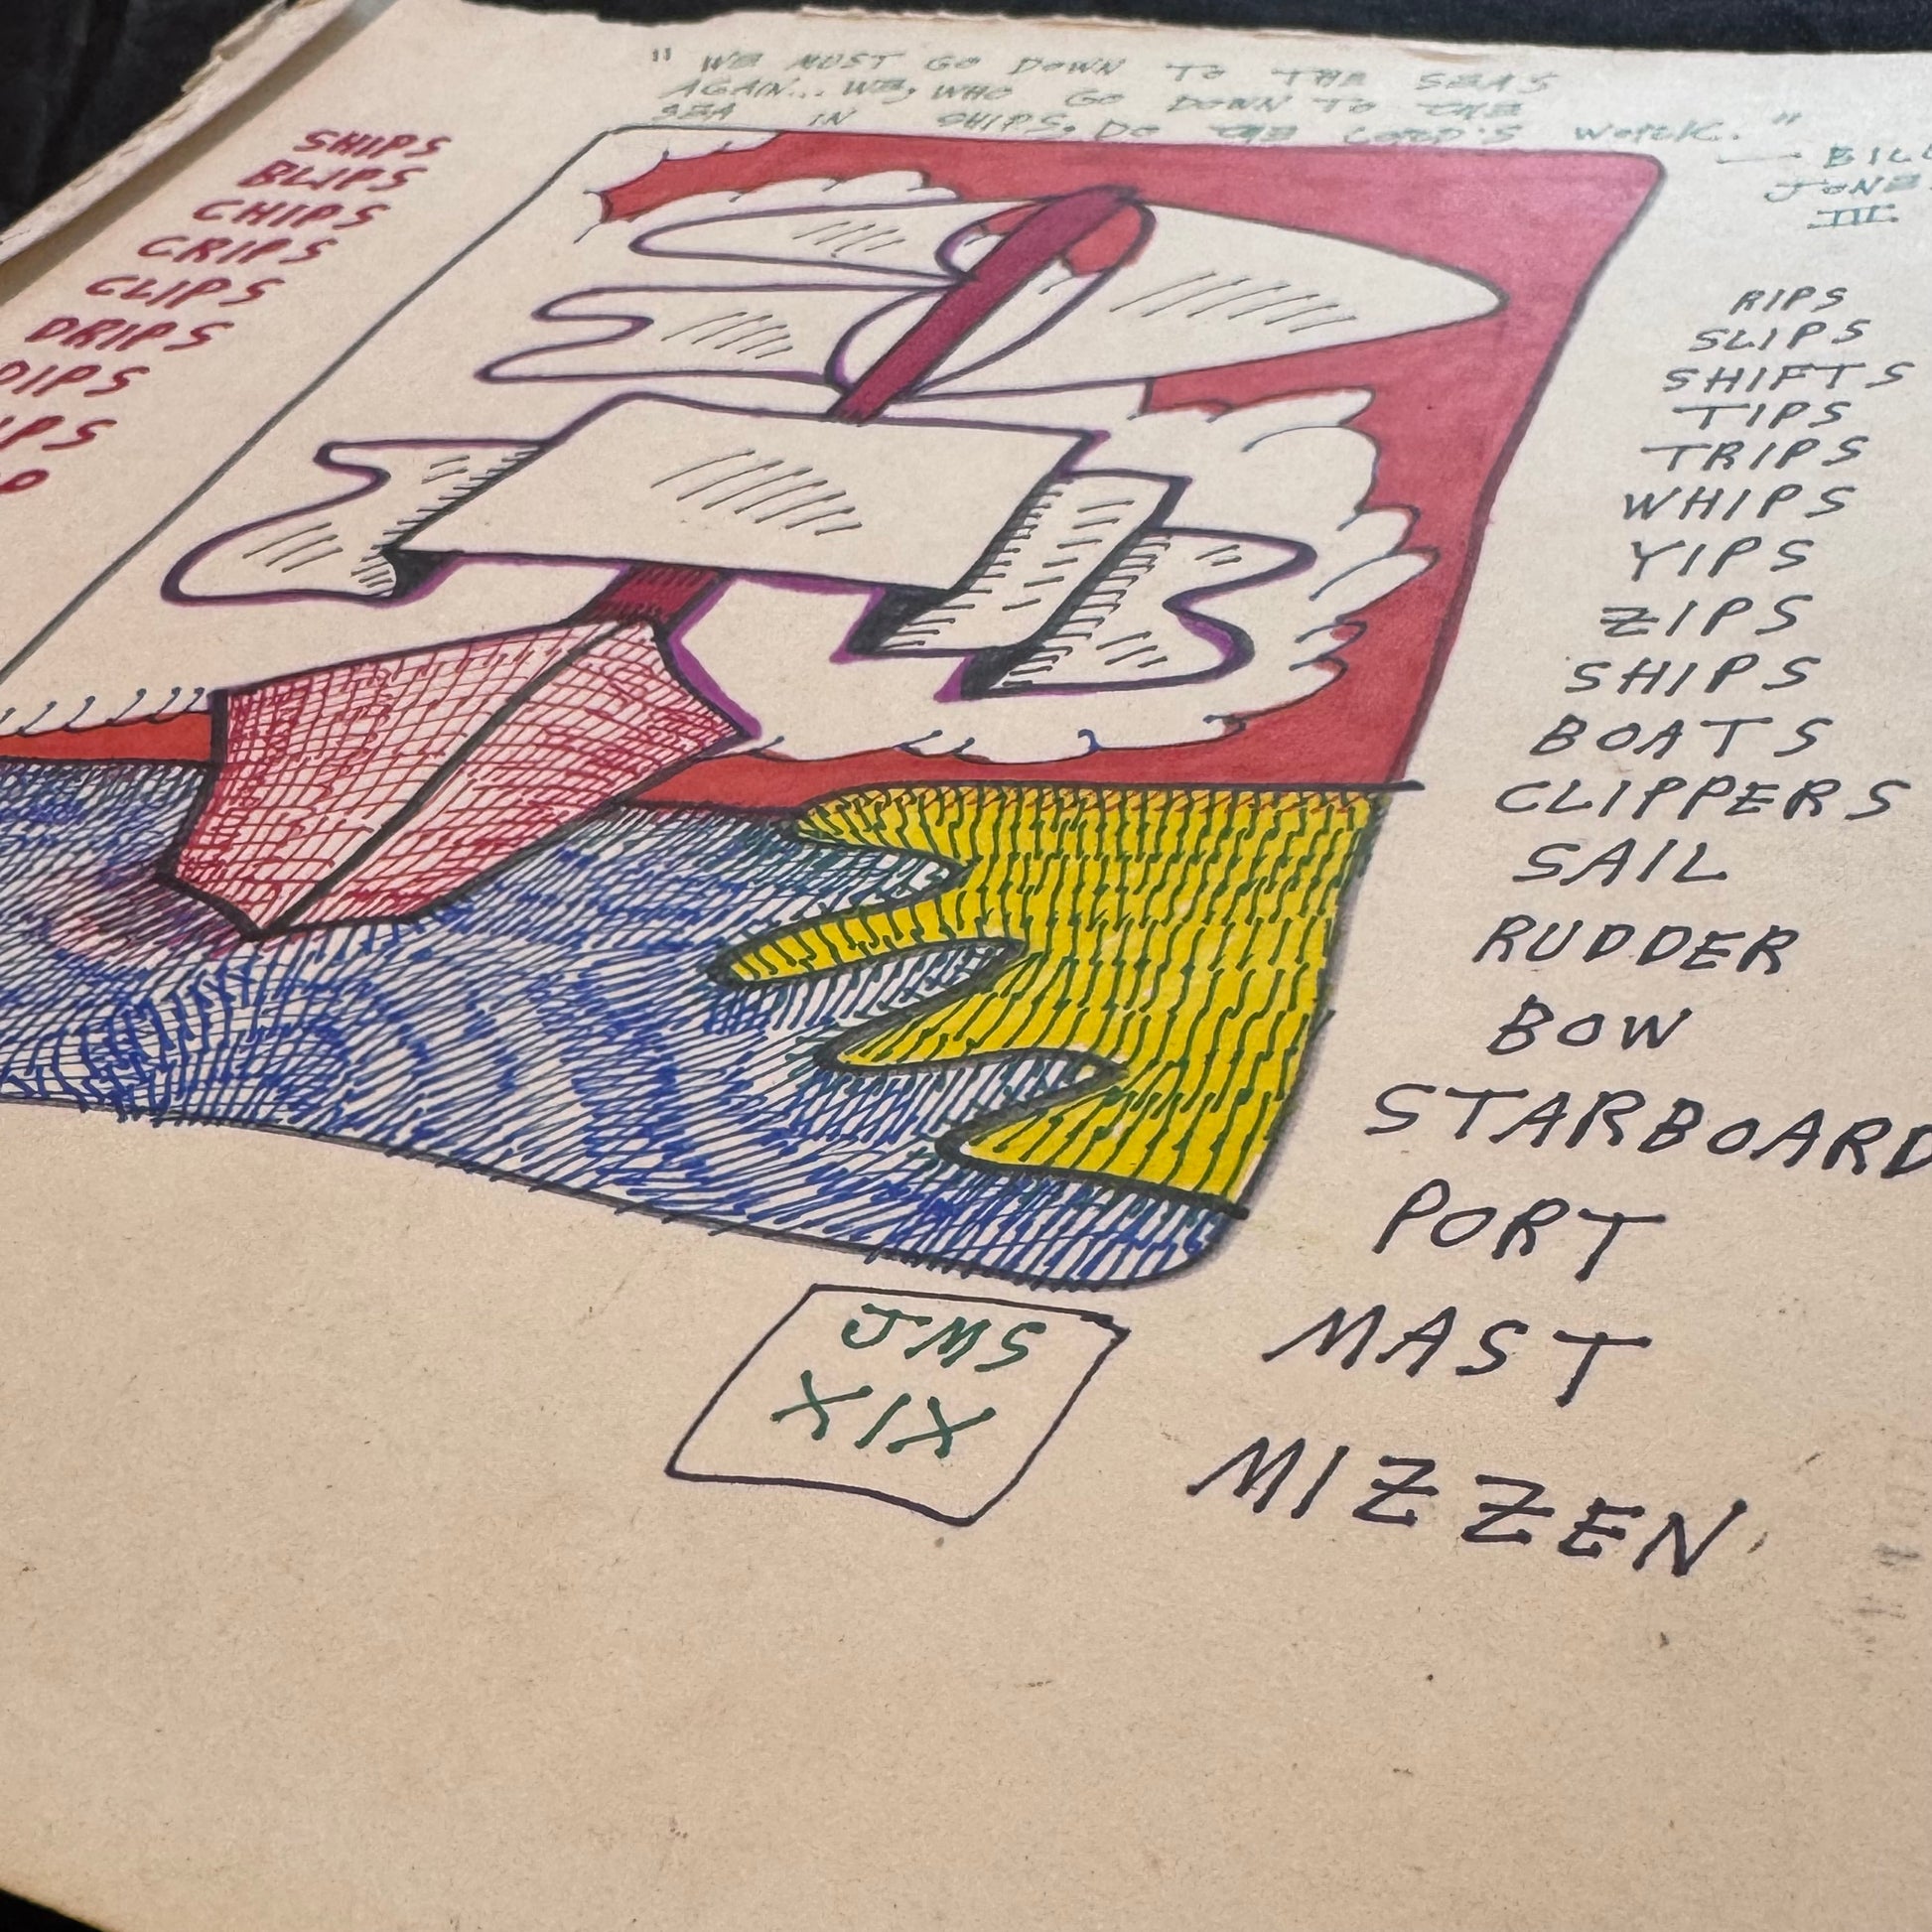 " WE MUST GO DOWN TO THE SEAS
AGAIN... WE, WHO GO DOWN TO THE
SEA IN SHIPS, DO THE LORD'S WORK. "
— BILL
JONE
III
SHIPS
BLIPS
CHIPS
CRIPS
CLIPS
DRIPS
DIPS
IPS
P
RIPS
SLIPS
SHIFTS
TIPS
TRIPS
WHIPS
YIPS
ZIPS
SHIPS
BOATS
CLIPPERS
SAIL
RUDDER
BOW
STARBOARD
PORT
MAST
MIZZEN
JMS
XIX